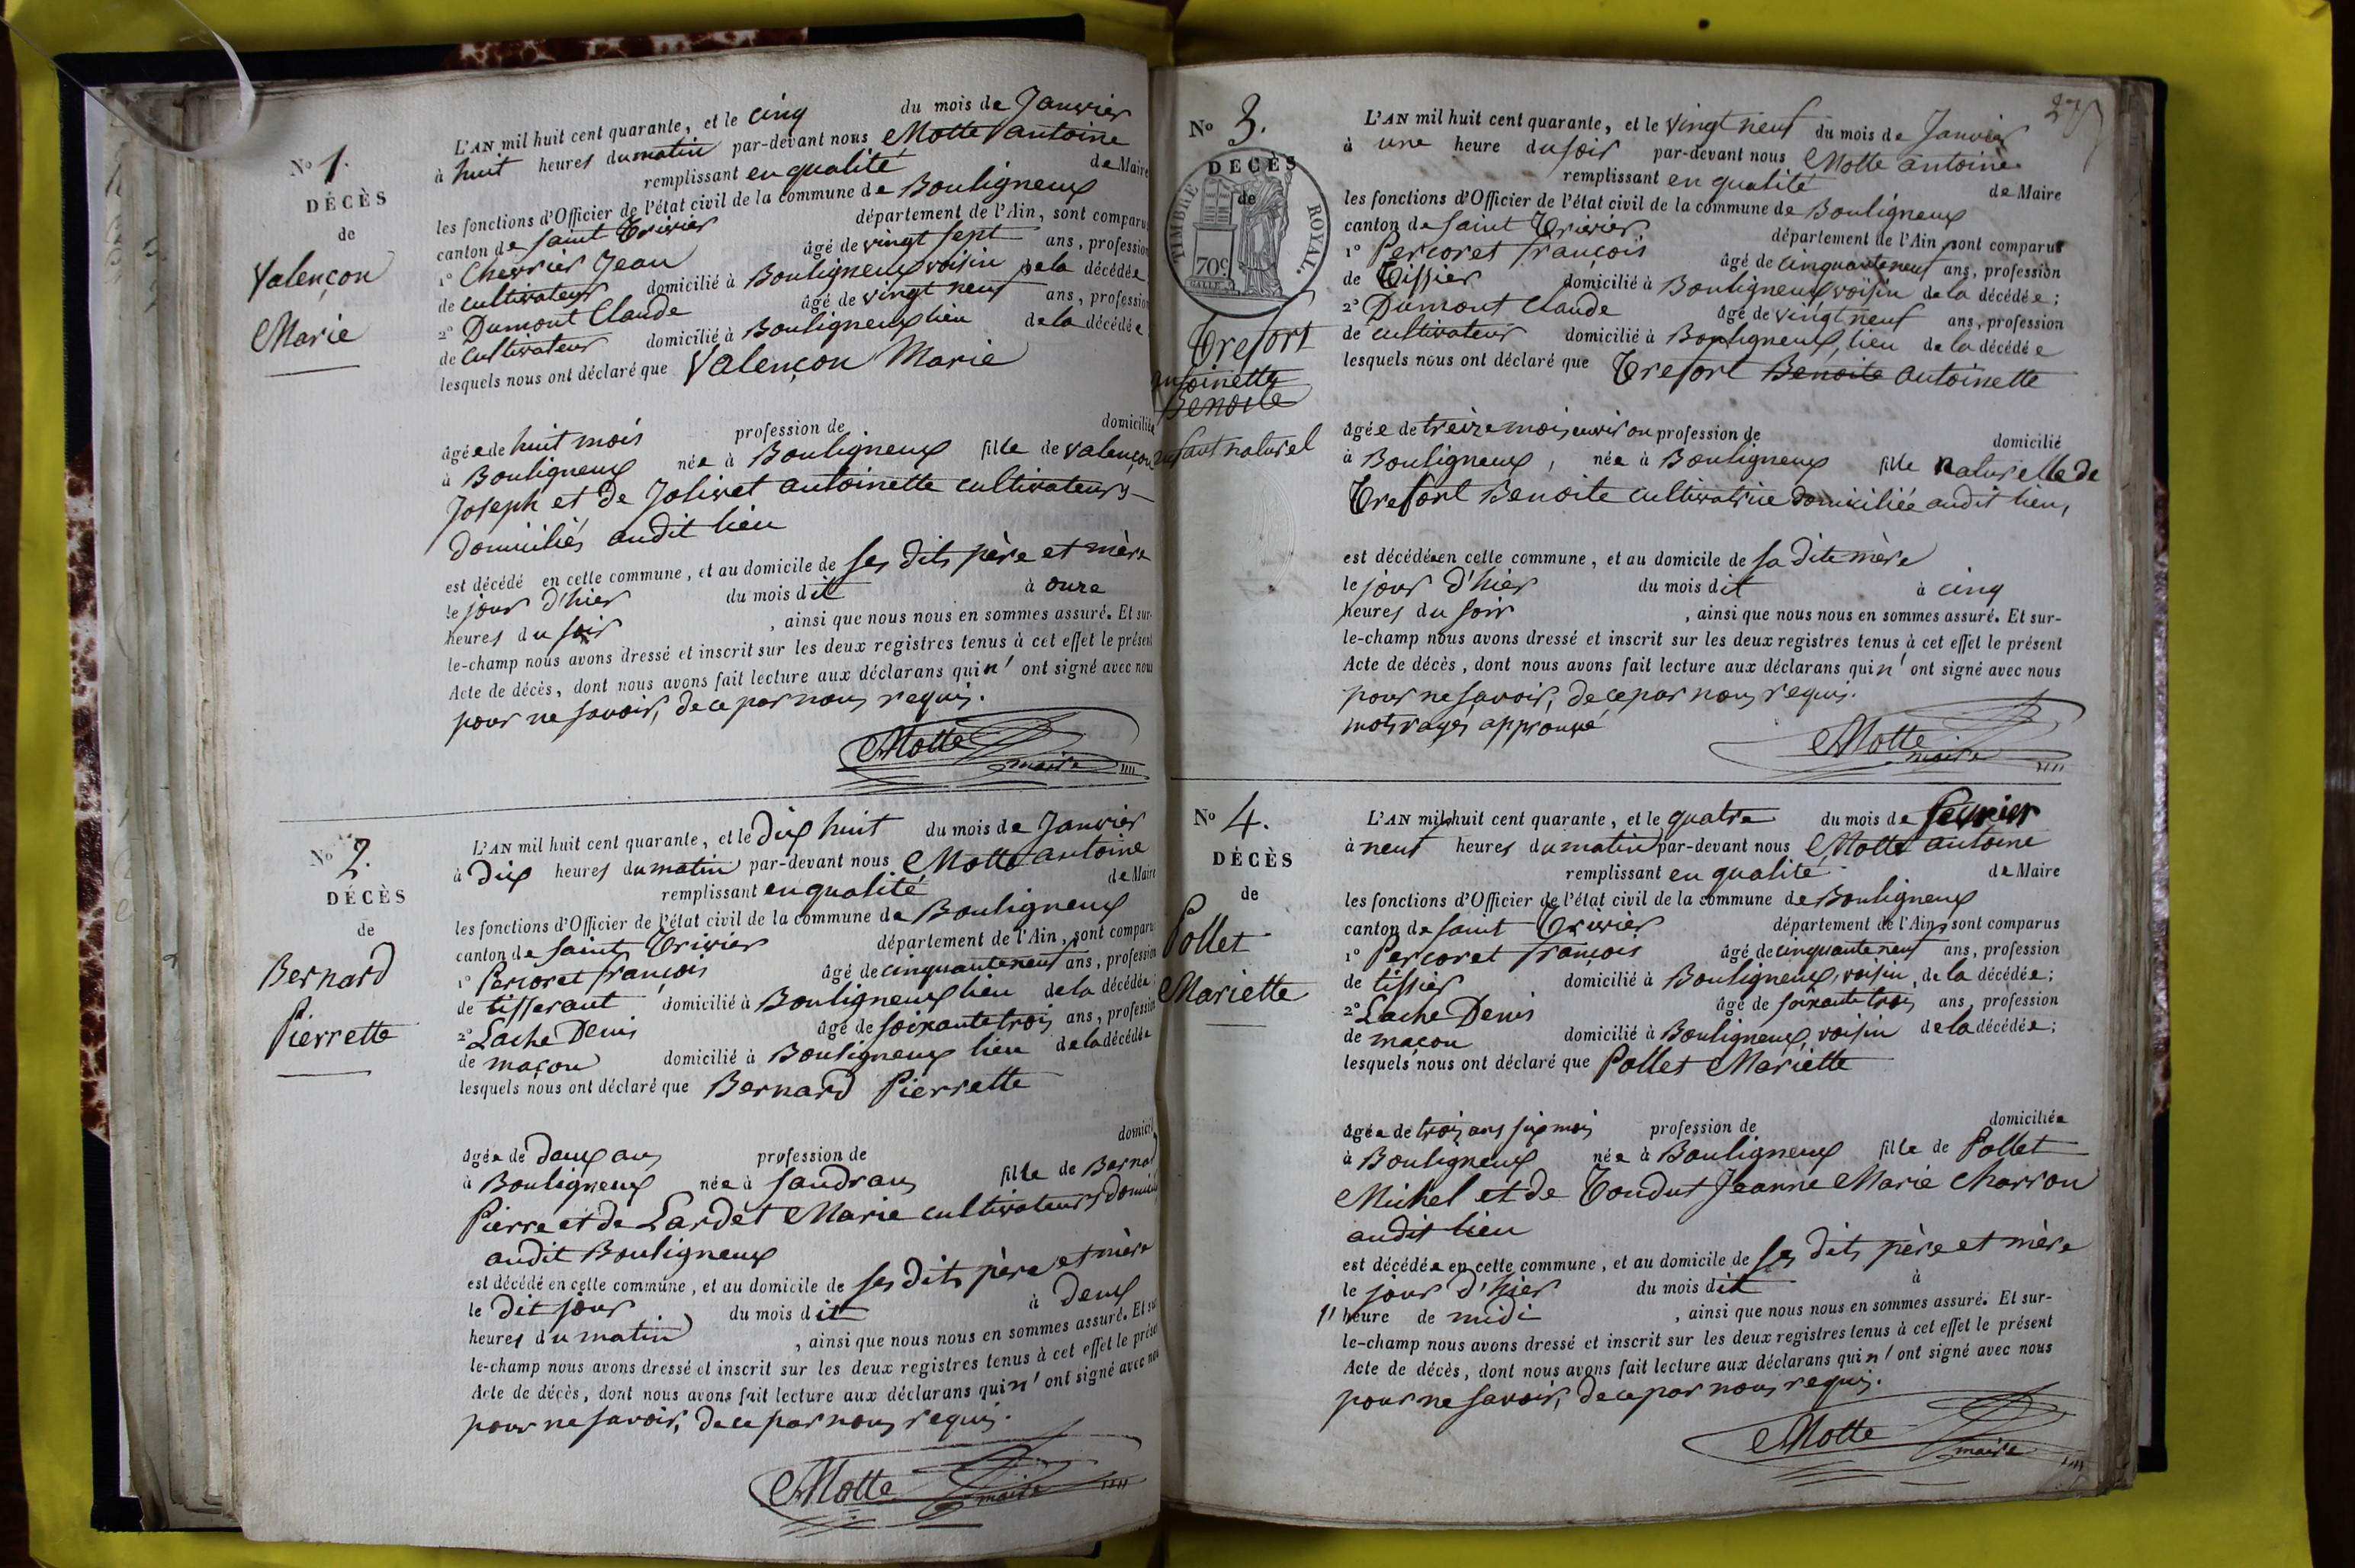 No 1.
DÉCÈS
de
Valençon
Marie
L'AN mil huit cent quarante, et le cinq du mois de Janvier
à huit heures du matin par-devant nous Motte antoine
remplissant en qualité de Maire
les fonctions d'Officier de l'état civil de la commune de Bouligneux
canton de saint Trivier département de l'Ain, sont comparus
1° Chevrier Jean âgé de vingt sept ans, profession
de cultivateur domicilié à Bouligneux voisin de la décédée
2° Dumont Claude âgé de vingt neuf ans, profession
de cultivateur domicilié à Bouligneux lieu de la décédée
lesquels nous ont déclaré que Valençon Marie
âgée de huit mois profession de domiciliée
à Bouligneux née à Bouligneux fille de valençon
Joseph et de Jolivet antoinette cultivateurs
domiciliés audit lieu
est décédé en cette commune, et au domicile de ses dits père et mère
le jour d'hier du mois dit à onze
heures du soir, ainsi que nous nous en sommes assuré. Et sur-
le-champ nous avons dressé et inscrit sur les deux registres tenus à cet effet le présent
Acte de décès, dont nous avons fait lecture aux déclarans qui n'ont signé avec nous
pour ne savoir, de ce par nous requis.
Motte
maire
No 2.
DÉCÈS
de
Bernard
Pierrette
L'AN mil huit cent quarante, et le dix huit du mois de Janvier
à dix heures du matin par-devant nous Motte antoine
remplissant en qualité de Maire
les fonctions d'Officier de l'état civil de la commune de Bouligneux
canton de saint Trivier département de l'Ain, sont comparu
1° Percoret françois âgé de cinquante neuf ans, profession
de tisserant domicilié à Bouligneux lieu de la décédée
2° Laché Denis âgé de soixante trois ans, profession
de maçon domicilié à Bouligneux lieu de la décédée
lesquels nous ont déclaré que Bernard Pierrette
âgée de deux ans profession de domicil
à Bouligneux née à sandrans fille de Bernard
Pierre et de Lardet Marie cultivateurs
audit Bouligneux
est décédé en cette commune, et au domicile de ses dits père et mère
le dit jour du mois dit à deux
heures du matin, ainsi que nous nous en sommes assuré. Et sur
le-champ nous avons dressé et inscrit sur les deux registres tenus à cet effet le présen
Acte de décès, dont nous avons fait lecture aux déclarans qui n'ont signé avec nou
pour ne savoir, de ce par nous requis.
Motte
maire
27
No 3.
DECÈS
de
TIMBRE ROYAL.
70c
Trefort
antoinette
Benoite
enfant naturel
L'AN mil huit cent quarante, et le vingt neuf du mois de Janvier
à une heure du soir par-devant nous Motte antoine
remplissant en qualité de Maire
les fonctions d'Officier de l'état civil de la commune de Bouligneux
canton de saint Trivier département de l'Ain, sont comparus
1° Percoret françois âgé de cinquante neuf ans, profession
de Tissier domicilié à Bouligneux voisin de la décédée;
2° Dumont Claude âgé de vingt neuf ans, profession
de cultivateur domicilié à Bouligneux, lieu de la décédée
lesquels nous ont déclaré que Trefort Benoite antoinette
âgée de treize mois environ profession de domicilié
à Bouligneux, née à Bouligneux fille naturelle de
Trefort Benoite cultivatrice domiciliée audit lieu,
est décédée en cette commune, et au domicile de sa dite mère
le jour d'hier du mois dit à cinq
heures du soir, ainsi que nous nous en sommes assuré. Et sur-
le-champ nous avons dressé et inscrit sur les deux registres tenus à cet effet le présent
Acte de décès, dont nous avons fait lecture aux déclarans qui n'ont signé avec nous
pour ne savoir, de ce par nous requis.
mots rayés approuvé
Motte
maire
No 4.
DÉCÈS
de
Pollet
Mariette
L'AN mil huit cent quarante, et le quatre du mois de fevrier
à neuf heures du matin par-devant nous Motte antoine
remplissant en qualité de Maire
les fonctions d'Officier de l'état civil de la commune de Bouligneux
canton de saint Trivier département de l'Ain, sont comparus
1° Percoret françois âgé de cinquante neuf ans, profession
de tissier domicilié à Bouligneux, voisin, de la décédée;
2° Lache Denis âgé de soixante trois ans, profession
de maçon domicilié à Bouligneux, voisin de la décédée;
lesquels nous ont déclaré que Pollet Mariette
âgée de trois ans six mois profession de domiciliée
à Bouligneux née à Bouligneux fille de Pollet
Michel et de Tondut Jeanne Marie charron
audit lieu
est décédée en cette commune, et au domicile de ses dits père et mère
le jour d'hier du mois dit à
11 heure de midi, ainsi que nous nous en sommes assuré. Et sur-
le-champ nous avons dressé et inscrit sur les deux registres tenus à cet effet le présent
Acte de décès, dont nous avons fait lecture aux déclarans qui n'ont signé avec nous
pour ne savoir, de ce par nous requis.
Motte
maire